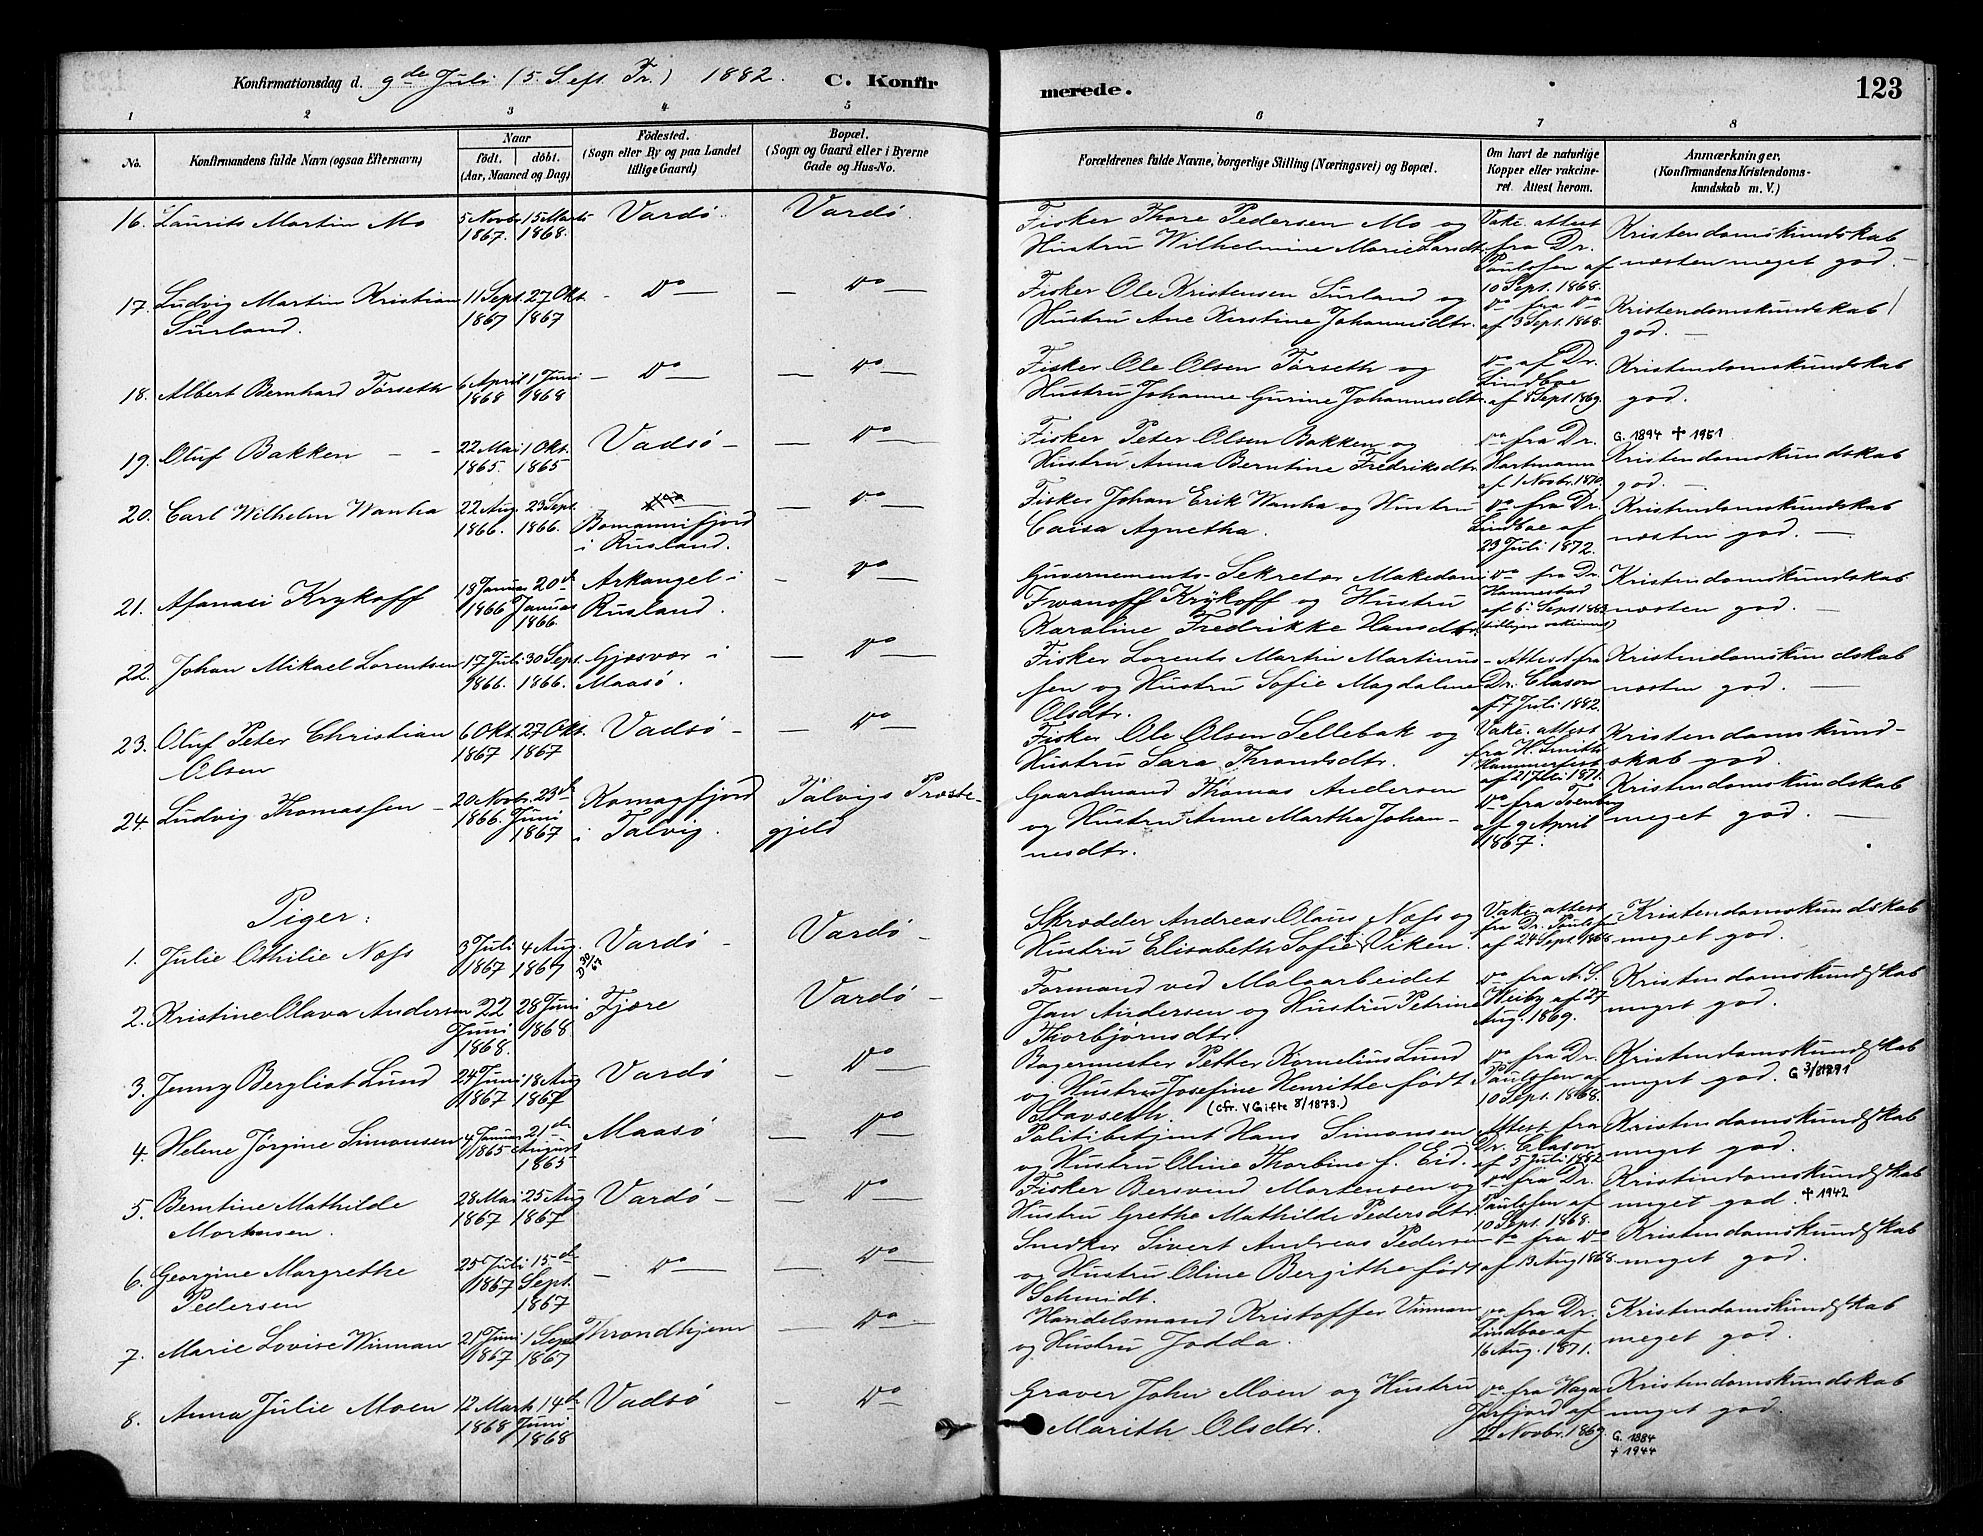 Konfirmationsdag d. 9de Juli (5. Sept. Tr.) 1882. C. Konfirmerede. 123
1 2 3 4 5 6 7 8
No. Konfirmandens fulde Navn (ogsaa Efternavn) Naar født. døbt. (Aar, Maaned og Dag) Fødested. (Sogn eller By og paa Landet tillige Gaard) Bopæl. (Sogn og Gaard eller i Byerne Gade og Hus-No. Forældrenes fulde Navne, borgerlige Stilling (Næringsvei) og Bopæl. Om havt de naturlige Kopper eller vakcineret. Attest herom. Anmærkninger. (Konfirmandens Kristendomskundskab m. V.)
16. Laurits Martin Mo 5 Novbr 1867. 15 Marts 1868. Vardø. Vardø. Fisker Thore Pedersen Mo og Hustru Wilhelmine Marie Larsdtr. Vakc. attest fra Dr. Paulssen af 10 Sept. 1868. Kristendomskundskab næsten meget god. —
17. Ludvig Martin Kristian Surland. 11 Sept. 1867 27 Okt. 1867 — Do — — Do — Fisker Ole Kristensen Surland og Hustru Ane Kerstine Johannesdtr. Do fra Do af 3 Sept. 1868. Kristendomskundskab god. —
18. Albert Bernhard Tørseth 6 April 1868 1 Juni 1868 — Do — — Do — Fisker Ole Olsen Tørseth og Hustru Johanne Gurine Johannesdtr. Do af Dr. Lindboe af 8 Sept 1869. Kristendomskundskab god.
19. Oluf Bakken — — 22 Mai 1865. 1 Okt. 1865 Vadsø — — Do — Fisker Peter Olsen Bakken og Hustru Anna Berntine Fredriksdtr. Do fra Dr. Hartmann af 1 Novbr. 1870. G. 1894 † 1951 Kristendomskundskab god. —
20. Carl Wilhelm Wanha 22 Aug. 1866. 23 Sept. 1866. Bomannifjord i Rusland. — Do — Fisker Johan Erik Wanha og Hustru Caisa Agnetha. Do fra Dr. Lindboe af 23 Juli 1872. Kristendomskundskab næsten god. —
21. Afanasi Krykoff 18 Januar 1866 20de Januar 1866. Arkangel i Rusland. — Do — Guvernements-Sekretær Makedoni Iwanoff Krykoff og Hustru Karoline Fredrikke Hansdtr. Do fra Dr. Hannestad af 6 Sept 1882 (tidligere vakcineret) Kristendomskundskab næsten god. —
22. Johan Mikael Lorentsen 17 Juli 1866. 30 Sept. 1866. Gjæsvær i Maasø. — Do — Fisker Lorents Martin Martinussen og Hustru Sofie Magdalene Olsdtr. Attest fra Dr. Clason af 7 Juli 1882. Kristendomskundskab næsten god. —
23. Oluf Peter Christian Olsen 6 Okt. 1867 27 Okt. 1867 Vadsø — — Do — Fisker Ole Olsen Sellebak og Hustru Sara Throndsdtr. Vakc. attest fra H. Smith Hammerfest af 21 1871. Kristendomskundskab god.
24. Ludvig Thomassen — 20 Novbr. 1866. 23de Juni 1867 Komagfjord i Talvig. Talvigs Præstegjeld Gaardmand Thomas Andersen og Hustru Anne Martha Johannesdtr. Do fra Tvenberg af 9 April 1867. Kristendomskundskab meget god. —
Piger:
1. Julie Othilie Næss 3 Juli 1867 4 Aug. 1867 Vardø — Vardø — Skrædder Andreas Olaus Næss og Hustru Elisabeth Sofie Viken. Vakc. attest fra Dr. Paulssen af 24 Sept. 1868 Kristendomskundskab meget god.
2. Kristine Olava Andersen 22 Juni 1868. 28 Juni 1868 Fjære Vardø — Formand ved Moloarbeidet Jan Andersen og Hustru Petrine Thorbjørnsdtr. Do fra A. S. Weiby af 27 Aug. 1869. Kristendomskundskab meget god.
3. Jenny Bergliot Lund 24 Juni 1867 18 Aug 1867 Vardø — Do — Bagermester Petter Kornelius Lund og Hustru Josefine Henriette født Stavseth. (cfr. V Gifte 8/1873.) Do fra Dr. Paulssen af 10 Sept. 1868. Kristendomskundskab meget god. G 3/8 1891
4. Helene Jørgine Simonsen 4 Januar 1865 21de August 1865 Maasø — Do — Politibetjent Hans Simonsen og Hustru Oline Thorbine f. Eid. Attest fra Dr. Clason af 5 Juli 1882 Kristendomskundskab meget god.
5. Berntine Mathilde Mortensen. 28 Mai 1867 25 Aug 1867 Vardø — — Do — Fisker Bersvend Mortensen og Hustru Grethe Mathilde Pedersdtr. Do fra Dr. Paulssen af 10 Sept. 1868. Kristendomskundskab meget god † 1942
6. Georgine Margrethe Pedersen 25 Juli 1867 15de Sept. 1867 — Do — — Do — Snedker Sivert Andreas Pedersen og Hustru Oline Bergithe født Schmidt. Do fra Do af 13 Aug 1868. Kristendomskundskab meget god.
7. Marie Lovise Winman 21 Juni 1867 1 Sept 1867 Throndhjem — Do — Handelsmand Kristoffer Vinman og Hustru Jodda. Do fra Dr. Lindboe af 16 Aug. 1871. Kristendomskundskab meget god.
8. Anna Julie Moen 12 Marts 1868 14de Juni 1868 Vadsø — Do — Graver John Moen og Hustru Marith Olsdtr. Do fra Haga Jarfjord af 22 Novbr. 1869. Kristendomskundskab meget god. G. 1884 † 1944